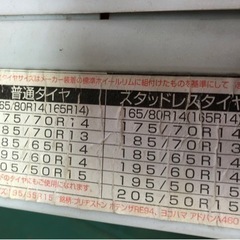 イヤサイズはメーカー装着の標準ホイールリムに組付けたもの 基準にして
普通タイヤ スタッドレスタイヤ
65/80R14(165R14) 165/80R14(165R14)
175/70R14 175/70R14
185/70R14 185/70R14
185/65R14 185/65R14
195/60R15 195/60R15
195/50R15 195/50R15
205/50R15 205/50R15
のタイヤにもご使用になれます。
195/55R15 銘柄:ブリヂストン ポテンザRE94、ヨコハマ アドバンA460